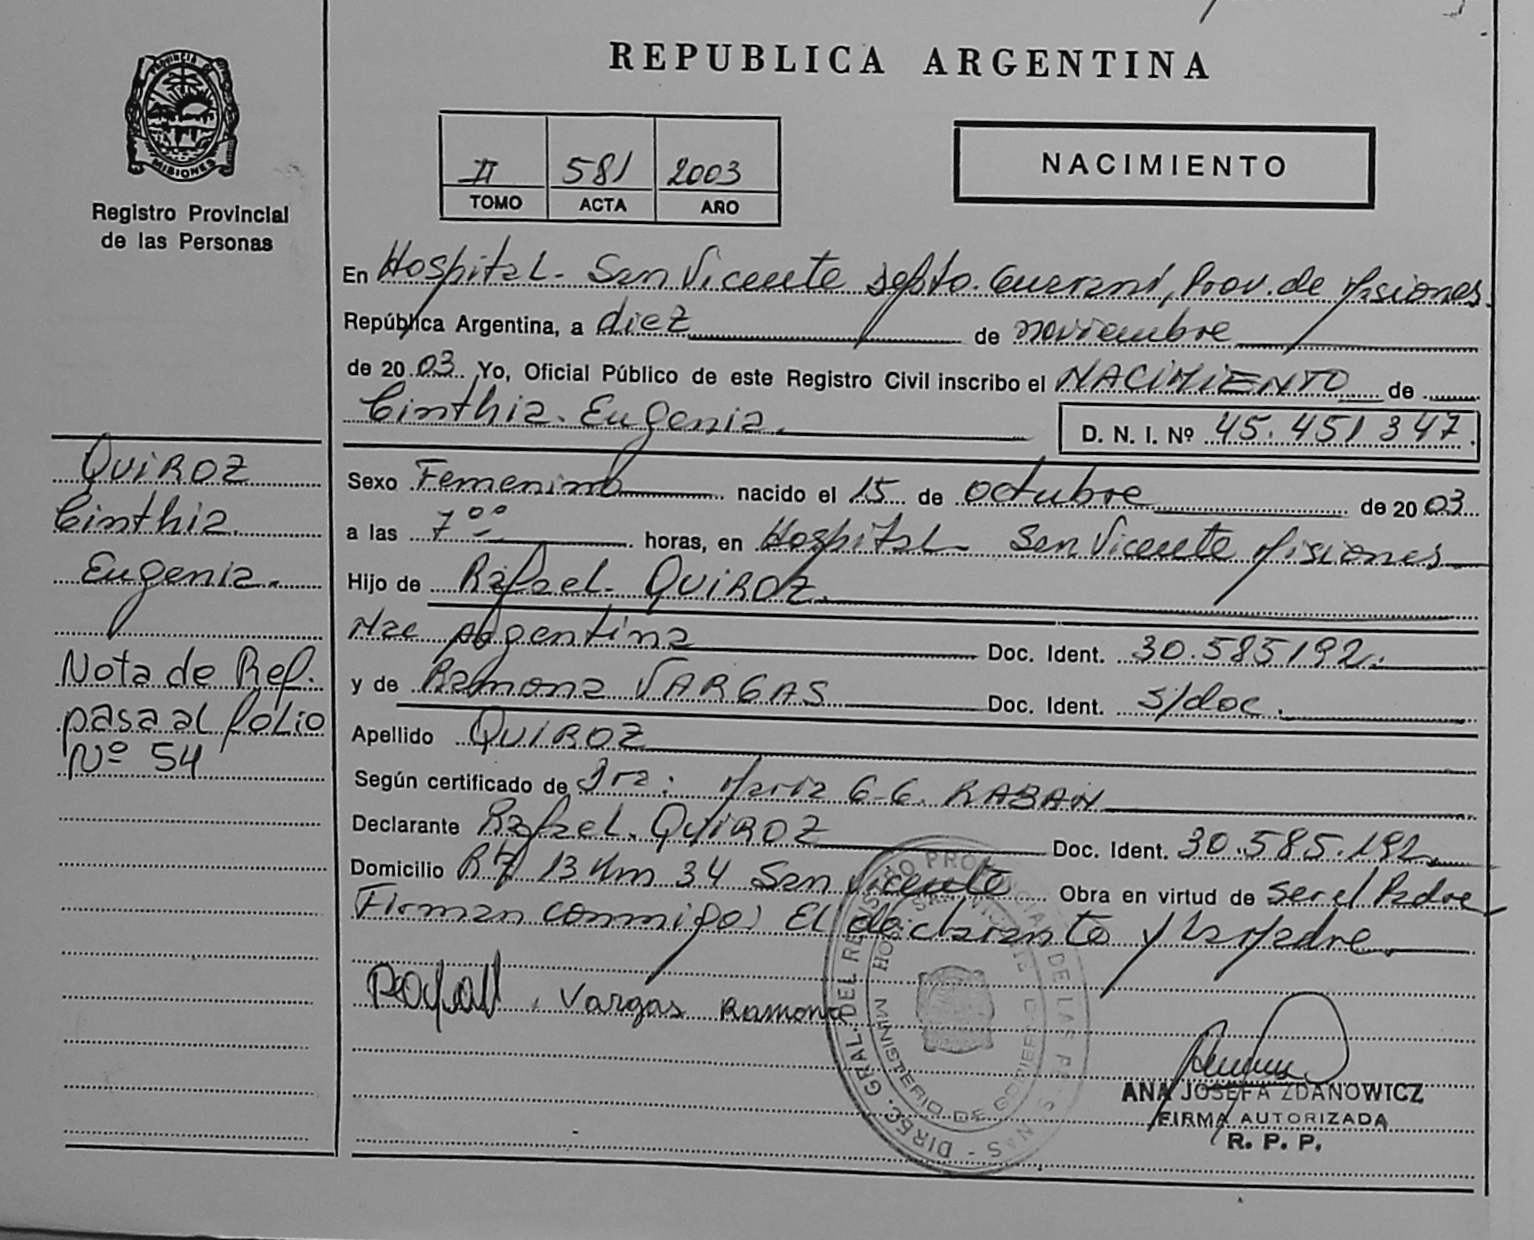 REPUBLICA ARGENTINA
PROVINCIA DE
MISIONES
Registro Provincial
de las Personas
II 581 2003
TOMO ACTA AÑO
NACIMIENTO
En Hospital - San Vicente Depto. Guaraní, Prov. de Misiones
República Argentina, a diez de noviembre
de 2003. Yo, Oficial Público de este Registro Civil inscribo el NACIMIENTO de
Cinthia Eugenia.
D. N. I. Nº 45.451347.
QUIROZ
Cinthia
Eugenia.
Nota de Ref.
pasa al folio
Nº 54
Sexo Femenino nacido el 15 de octubre de 2003
a las 7ºº horas, en Hospital - San Vicente Misiones
Hijo de Rafael QUIROZ.
Nac Argentina Doc. Ident. 30.585192.
y de Ramona VARGAS Doc. Ident. s/doc.
Apellido QUIROZ
Según certificado de Dra: Maria G. G. RABAN
Declarante Rafael QUIROZ Doc. Ident. 30.585.192
Domicilio R 13 Km 34 San Vicente Obra en virtud de ser el Padre
Firman conmigo: El declarante y la Madre
Vargas Ramona
DIREC. GRAL. DEL REGISTRO PROVINCIAL DE LAS PERSONAS
HOSP. SAN VICENTE
MINISTERIO DE GOBIERNO
ANA JOSEFA ZDANOWICZ
FIRMA AUTORIZADA
R. P. P.